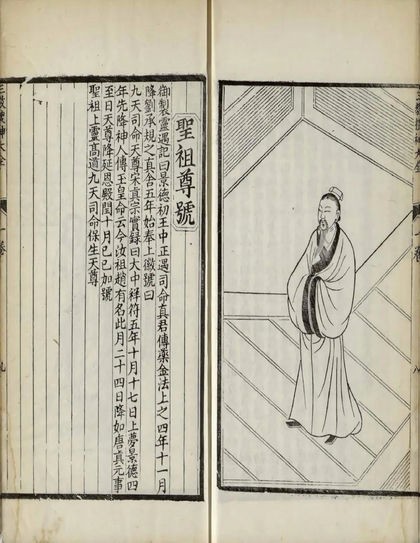 聖祖尊號
御製靈遇記曰景德初王中正遇司命真君傳藥金法上之四年十一月
降劉承規之真舍五年始奉上徽號曰
九天司命天尊宋真宗實錄曰大中祥符五年十月十七日上夢景德四
年先降神人傳玉皇命云今汝祖趙有名此月二十四日降如唐真元事
至日天尊降延恩殿閏十月己巳加號
聖祖上靈高道九天司命保生天尊
一卷
九